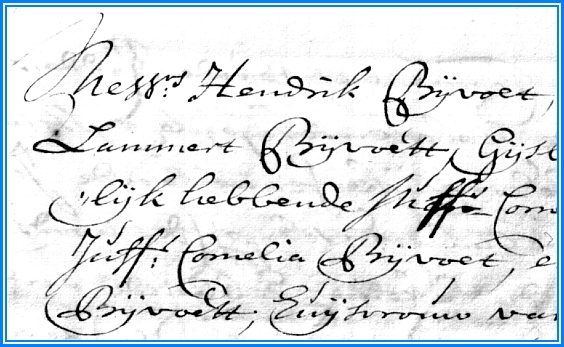 Mess.rs Hendrik Bijvoet,
Lammert Bijvoett, Gijs
lijk hebbende Juff.r Corn
Juff.r Cornelia Bijvoet, e
Bijvoett, Huijsvrouw van